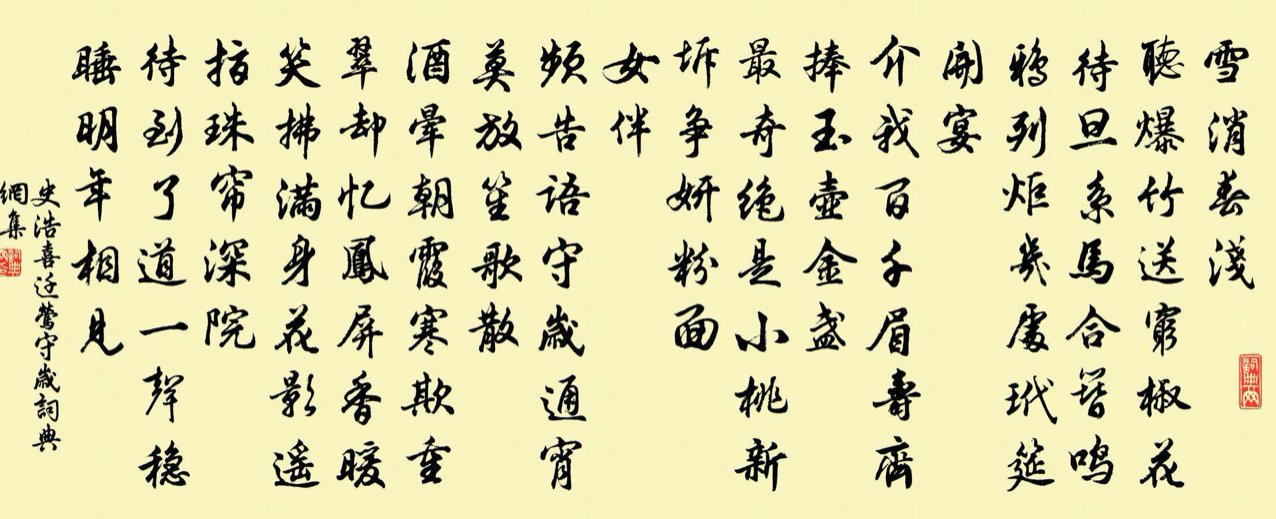 雪消春淺
聽爆竹送窮椒花
待旦系馬合簪鳴
鴉列炬幾處玳筵
開宴
介我百千眉壽齊
捧玉壺金盞
最奇絕是小桃新
坼争妍粉面
女伴
頻告語守歲通宵
莫放笙歌散
酒暈朝霞寒欺重
翠却忆鳳屏香暖
笑拂滿身花影遥
指珠帘深院
待到了道一聲稳
睡明年相見
史浩喜迁鶯守歲詞典
網集
詞典网